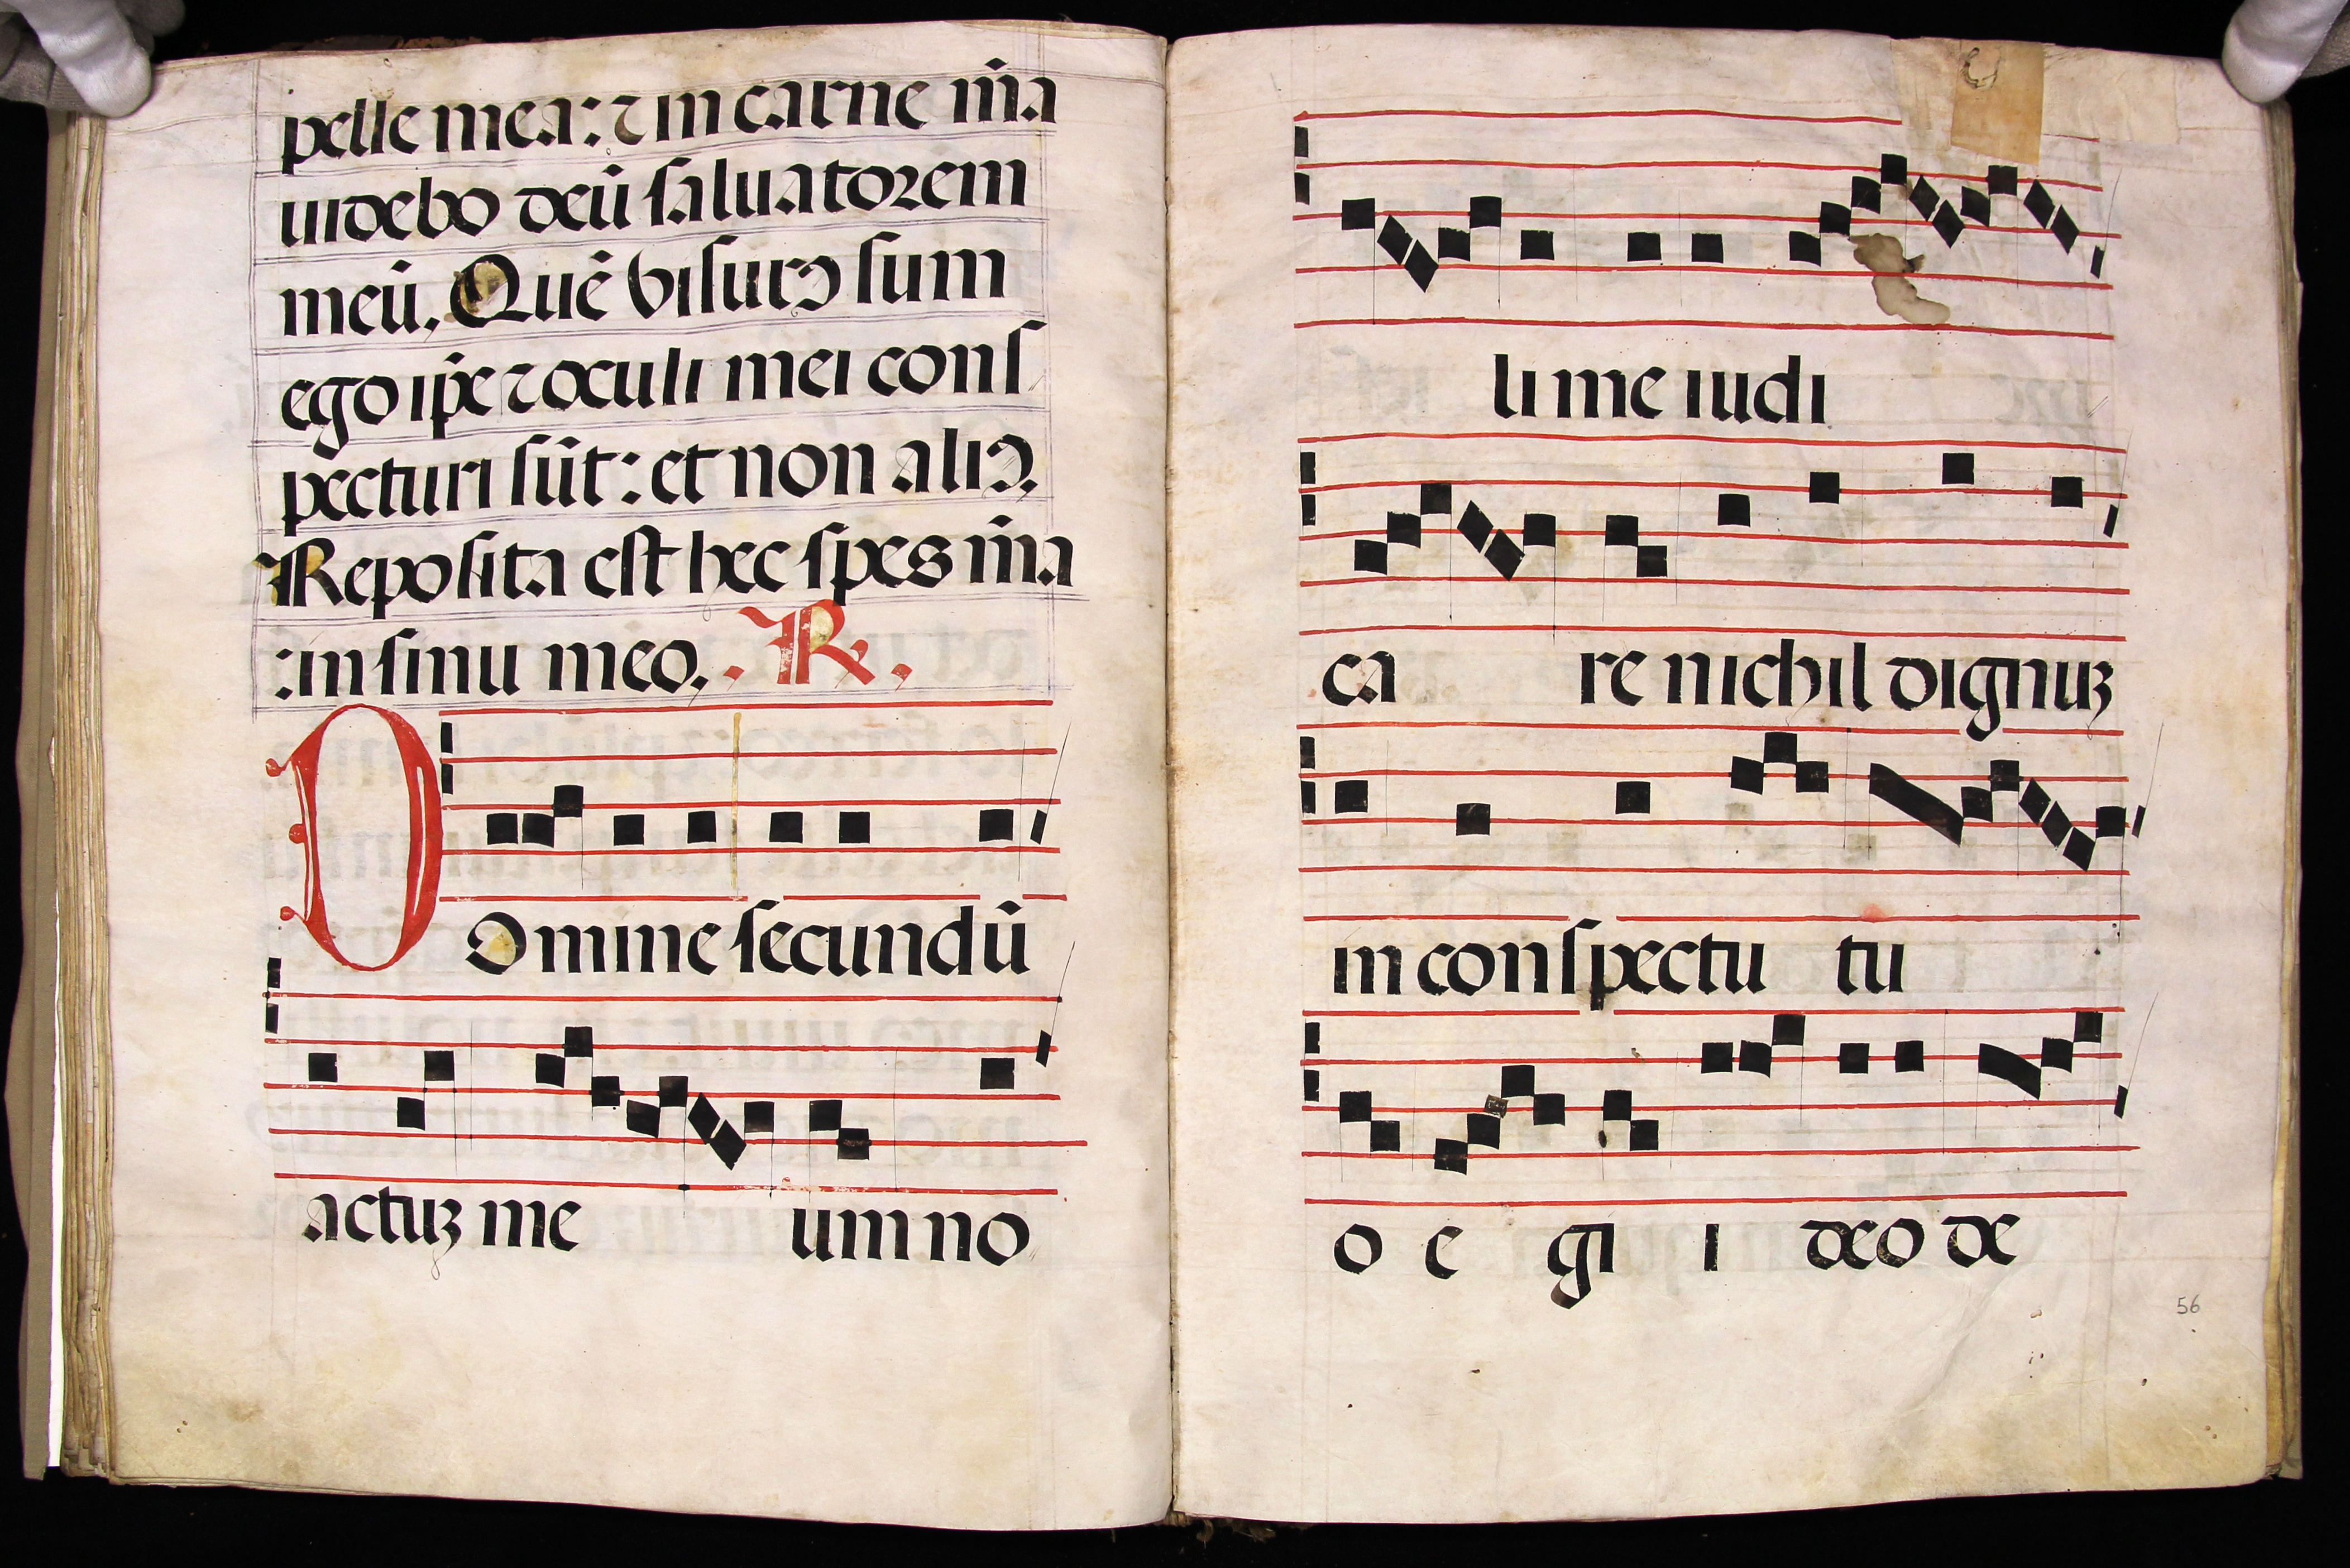 pelle mea: ⁊ in carne m̄a
uidebo deū ſaluatorem
meū. Quē viſurꝯ ſum
ego ip̄e ⁊ oculi mei conſ
pecturi ſūt: et non aliꝯ.
Repoſita eſt hec ſpes m̄a
: in ſinu meo. . R .
DOmine ſecundū
actuꝫ me um no
li me iudi
ca re nichil dignuꝫ
in conſpectu tu
o e gi i deo de
56